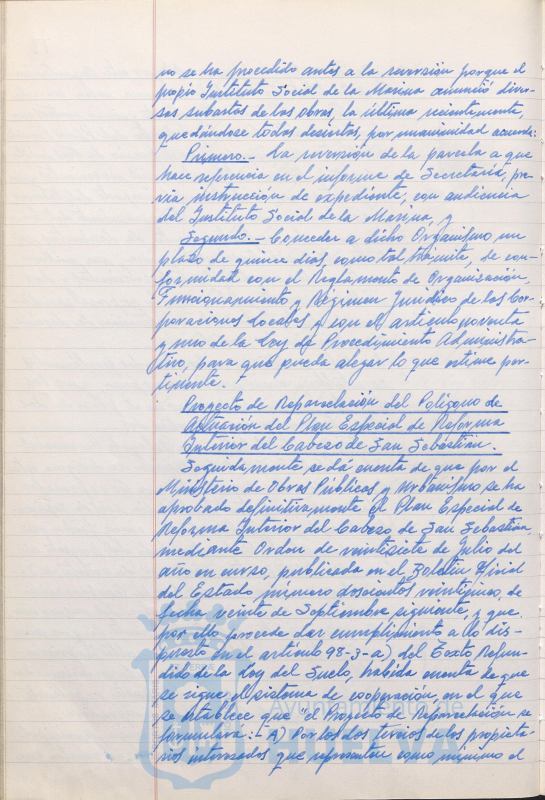 no se ha procedido antes a la reversión porque el
propio Instituto Social de la Marina anunció diver-
sas subastas de las obras, la última recientemente,
quedándose todas desiertas, por unanimidad acuerda:
Primero.- La reversión de la parcela a que
hace referencia en el informe de Secretaría, pre-
via instrucción de expediente, con audiencia
del Instituto Social de la Marina, y
Segundo.- Conceder a dicho Organismo un
plazo de quince días como tal trámite, de con-
formidad con el Reglamento de Organización,
Funcionamiento y Régimen Jurídico de las Cor-
poraciones Locales y con el artículo noventa
y uno de la Ley de Procedimiento Administra-
tivo, para que pueda alegar lo que estime per-
tinente.
Proyecto de Reparcelación del Polígono de
Actuación del Plan Especial de Reforma
Interior del Cabezo de San Sebastián.
Seguidamente, se dá cuenta de que por el
Ministerio de Obras Públicas y Urbanismo, se ha
aprobado definitivamente el Plan Especial de
Reforma Interior del Cabezo de San Sebastián,
mediante Orden de veintisiete de Julio del
año en curso, publicada en el Boletín Oficial
del Estado número doscientos veintiseis, de
fecha veinte de Septiembre siguiente, y que
por ello procede dar cumplimiento a lo dis-
puesto en el artículo 98-3-a) del Texto Refun-
dido de la Ley del Suelo, habida cuenta de que
se sigue el sistema de cooperación, en el que
se establece que "el Proyecto de Reparcelación se
formulará: - A) Por los dos tercios de los propieta-
rios interesados que representen como mínimo el
Ayuntamiento de
HUELVA